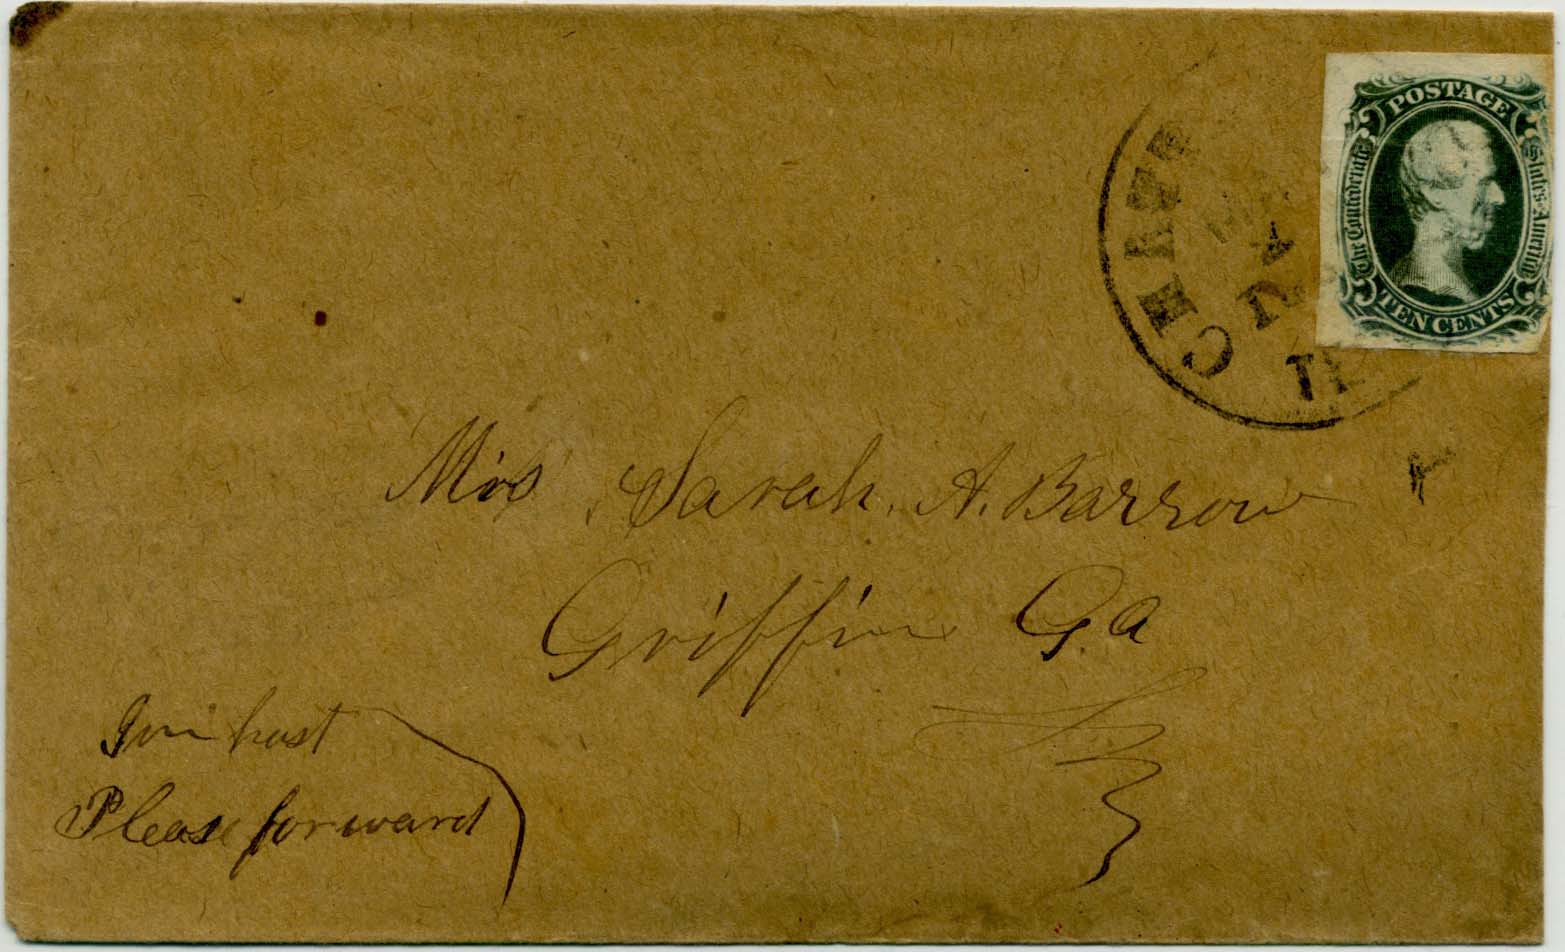 POSTAGE
The Confederate States of America
TEN CENTS
CHAT
Miss Sarah. A. Barrow
Griffin Ga
In hast
Please forward